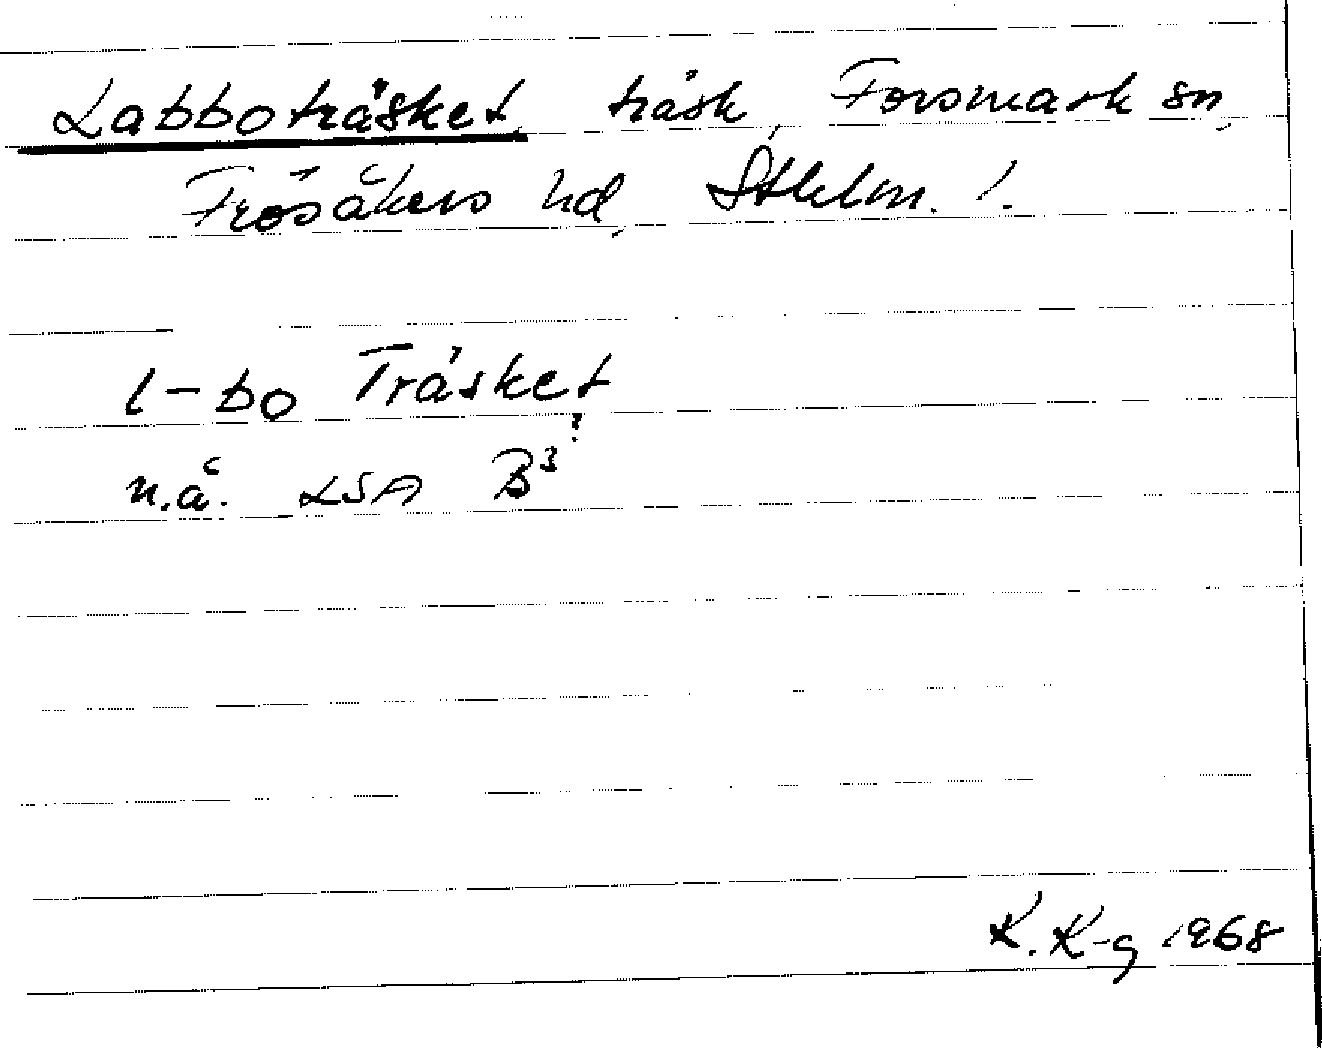 Labboträsket, träsk, Forsmark sn,
Frösåkers hd, Sthlm. l.
l-bo Träsket
n.å. LSA B3 ?
K. K-g 1968